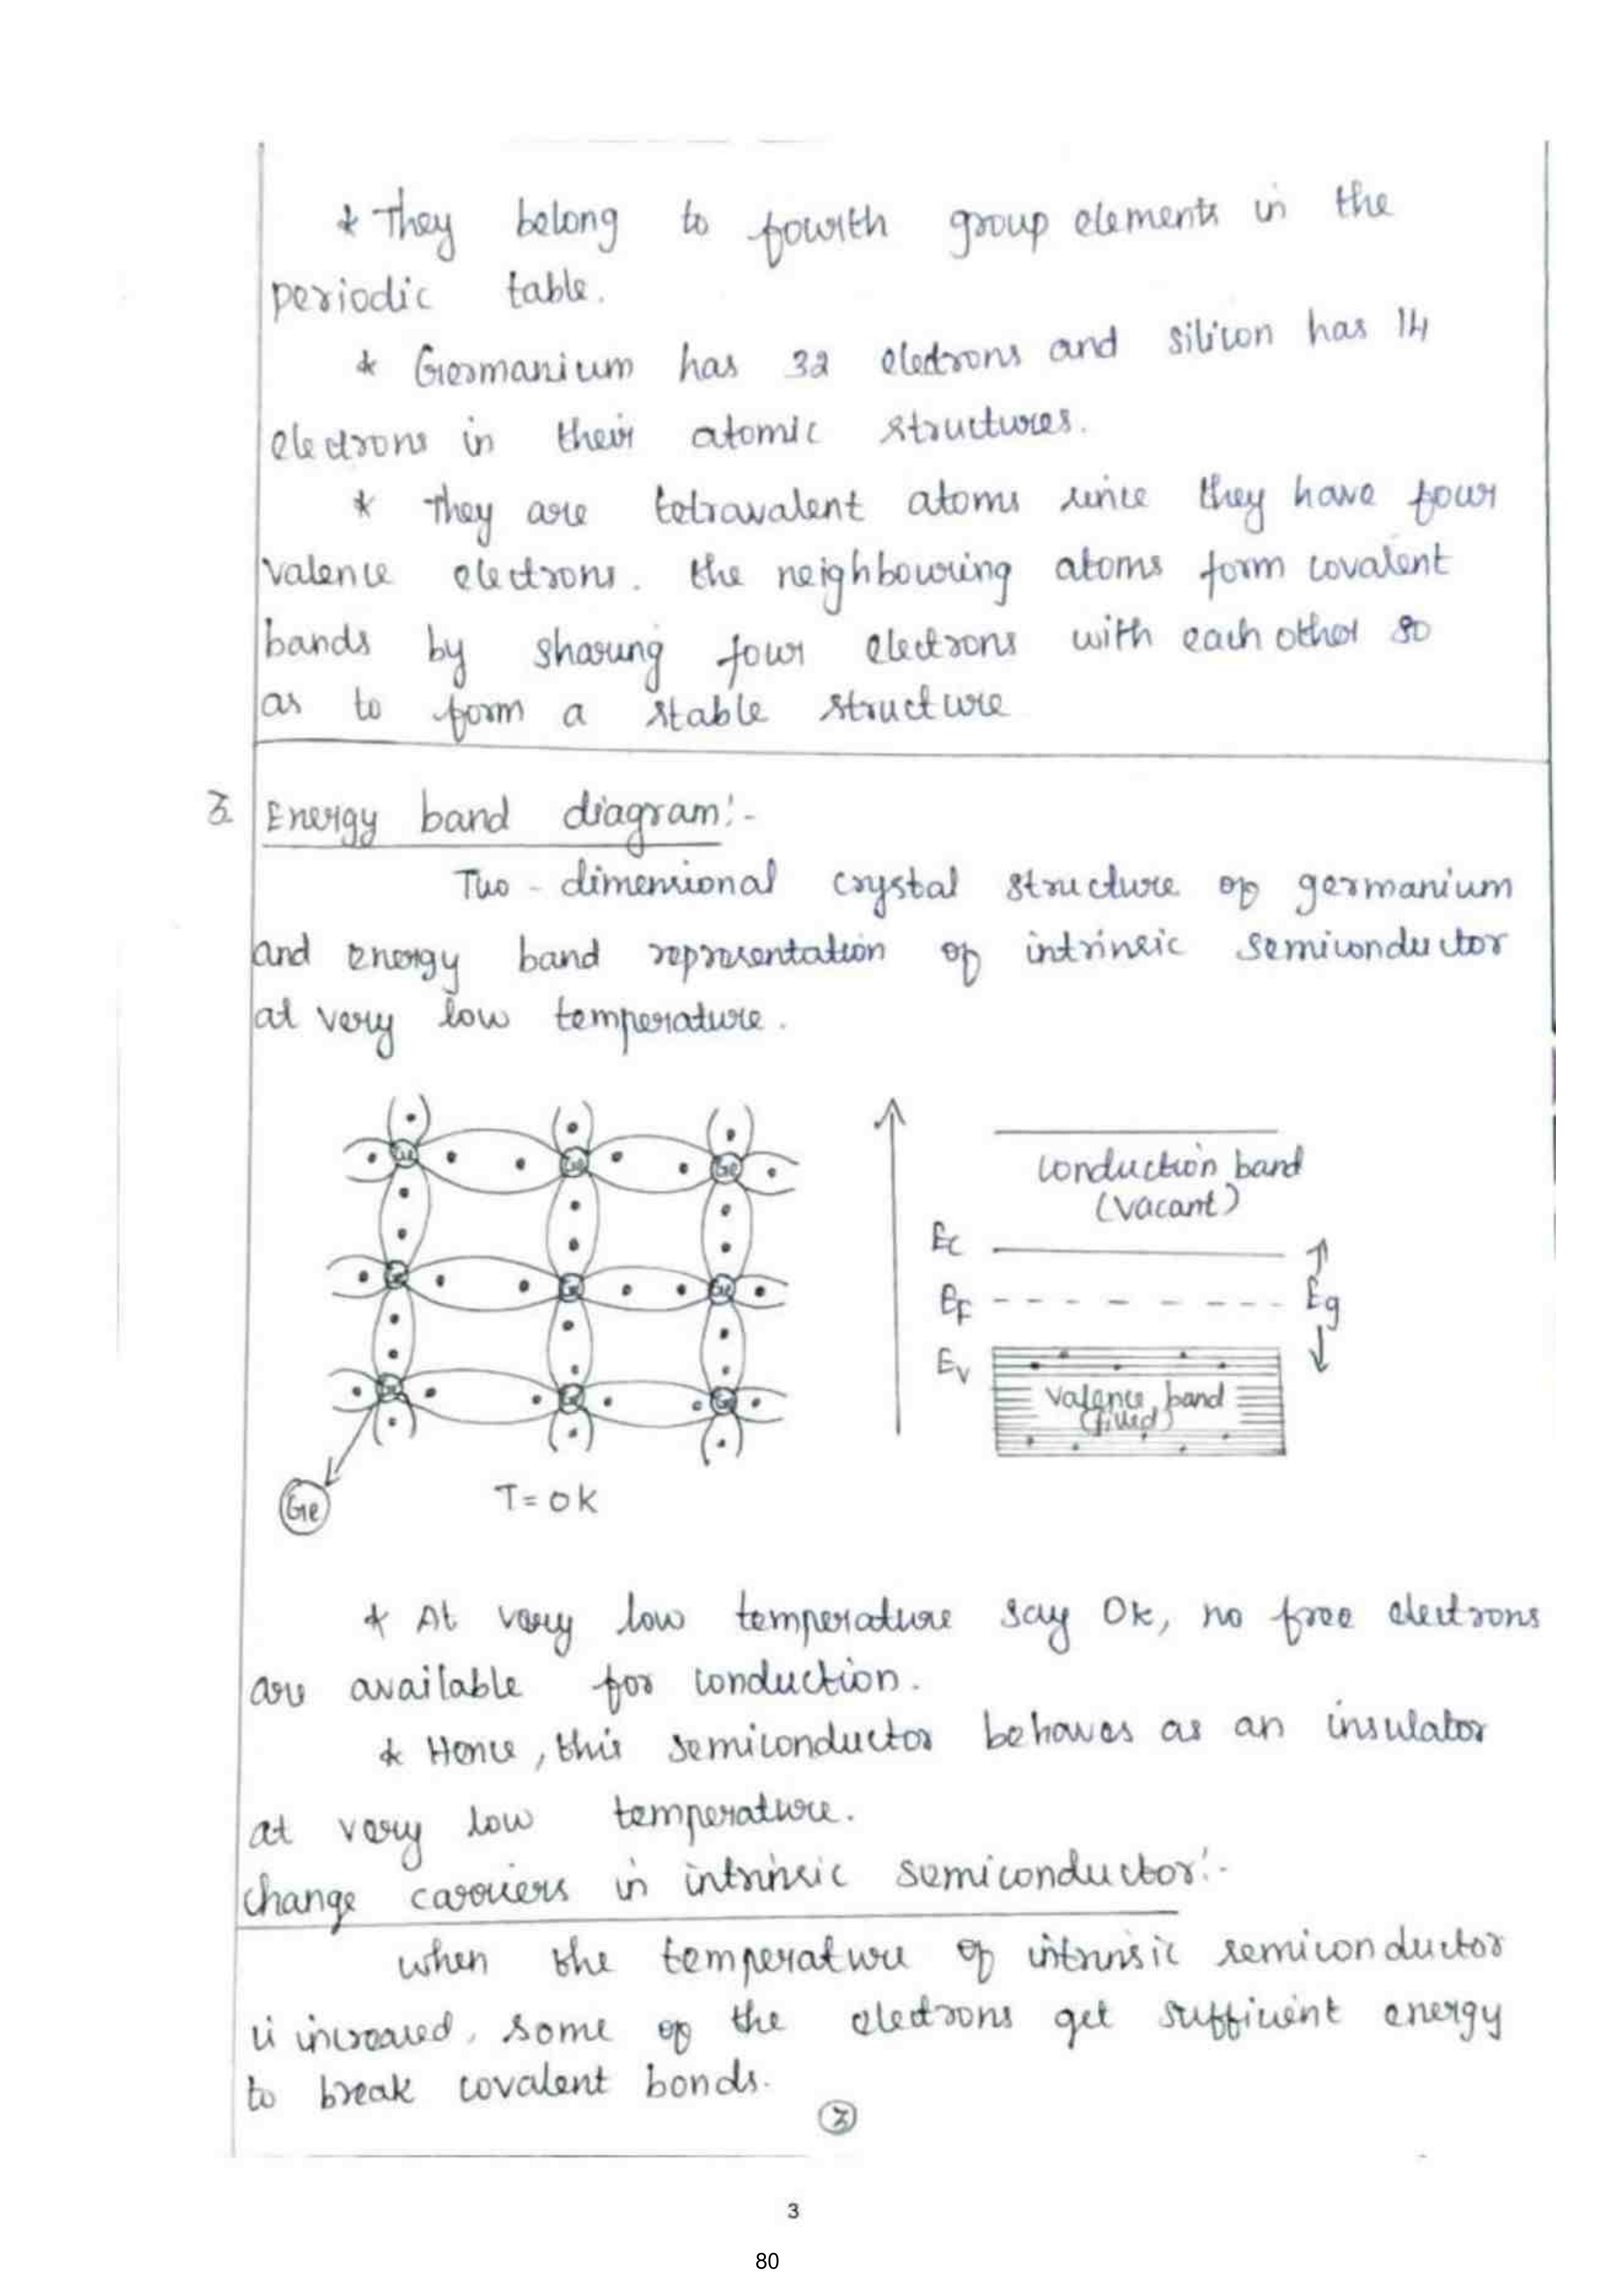 * They belong to fourth group elements in the
periodic table.
* Germanium has 32 electrons and silicon has 14
electrons in their atomic structures.
* They are tetravalent atoms since they have four
valence electrons. the neighbouring atoms form covalent
bands by sharing four electrons with each other so
as to form a stable structure
3. Energy band diagram:-
Two-dimensional crystal structure of germanium
and energy band representation of intrinsic semiconductor
at very low temperature.
Ge Ge Ge
Ge Ge Ge
Ge Ge Ge
Ge
T=0K
conduction band
(vacant)
Ec
EF
Eg
Ev
valence band
(filled)
* At very low temperature say 0k, no free electrons
are available for conduction.
* Hence, this semiconductor behaves as an insulator
at very low temperature.
change carriers in intrinsic semiconductor:-
when the temperature of intrinsic semiconductor
is increased, some of the electrons get sufficient energy
to break covalent bonds.
3
3
80